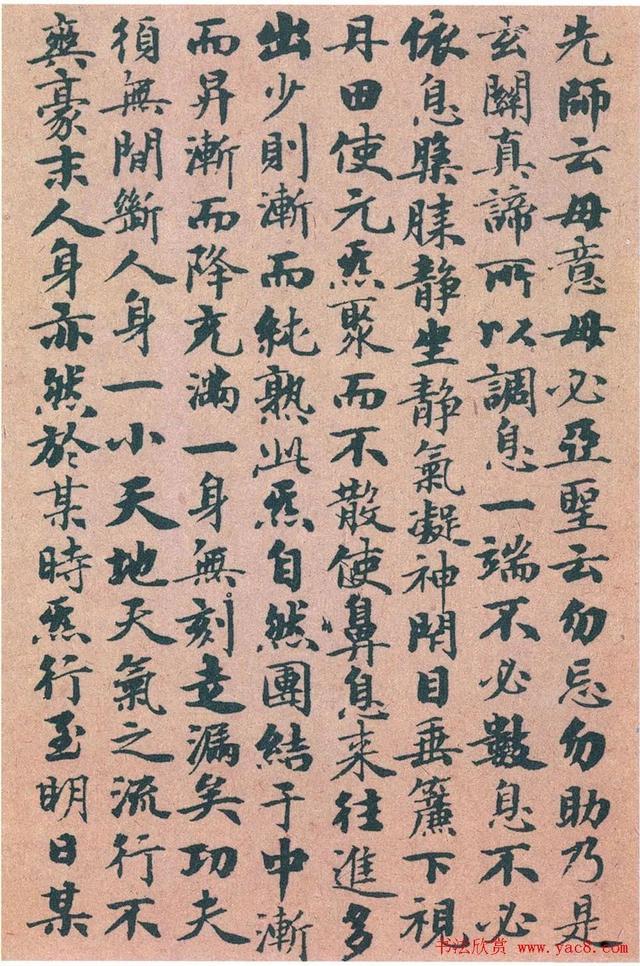 先師云毋意毋必亞聖云勿忘勿助乃是
玄關真諦所以調息一端不必數息不必
依息靜坐靜氣凝神閉目垂簾下視
丹田使元炁聚而不散使鼻息来往進多
出少則漸而純熟此炁自然團結于中漸
而昇漸而降充滿一身無刻走漏矣功夫
須無間斷人身一小天地天氣之流行不
爽豪末人身亦然於某時炁行至明日某
书法欣赏 www.yac8.com